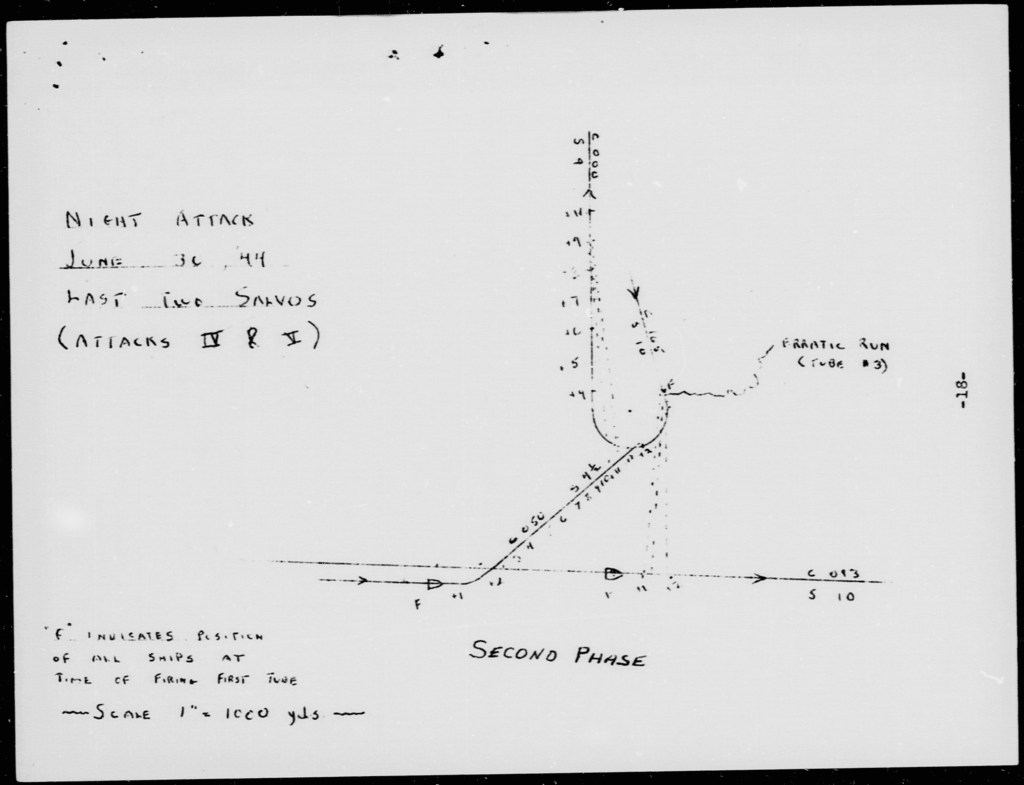 NIGHT ATTACK
JUNE 30, 44
LAST TWO SALVOS
(ATTACKS IV & V)
C 000
S 6
+9
+7
+6
+5
+4
S 10
F
ERRATIC RUN
(TUBE #3)
-18-
S 4½
C 050
4 6 7 8 9 10 11
+2
F
+1
+2
C 093
S 10
"F" INDICATES POSITION
OF ALL SHIPS AT
TIME OF FIRING FIRST TUBE
SCALE 1" = 1000 yds
SECOND PHASE